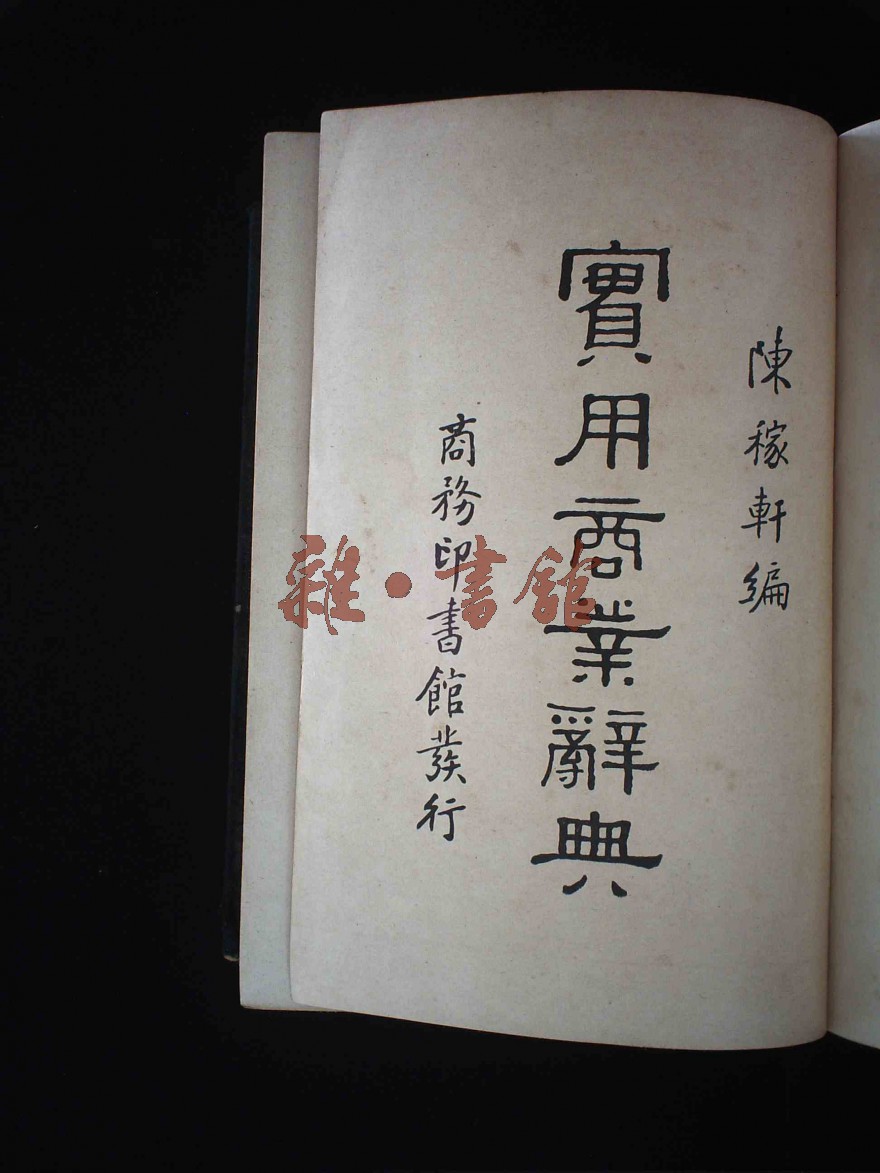 陳稼軒編
實用商業辭典
商務印書館發行
雜·書館